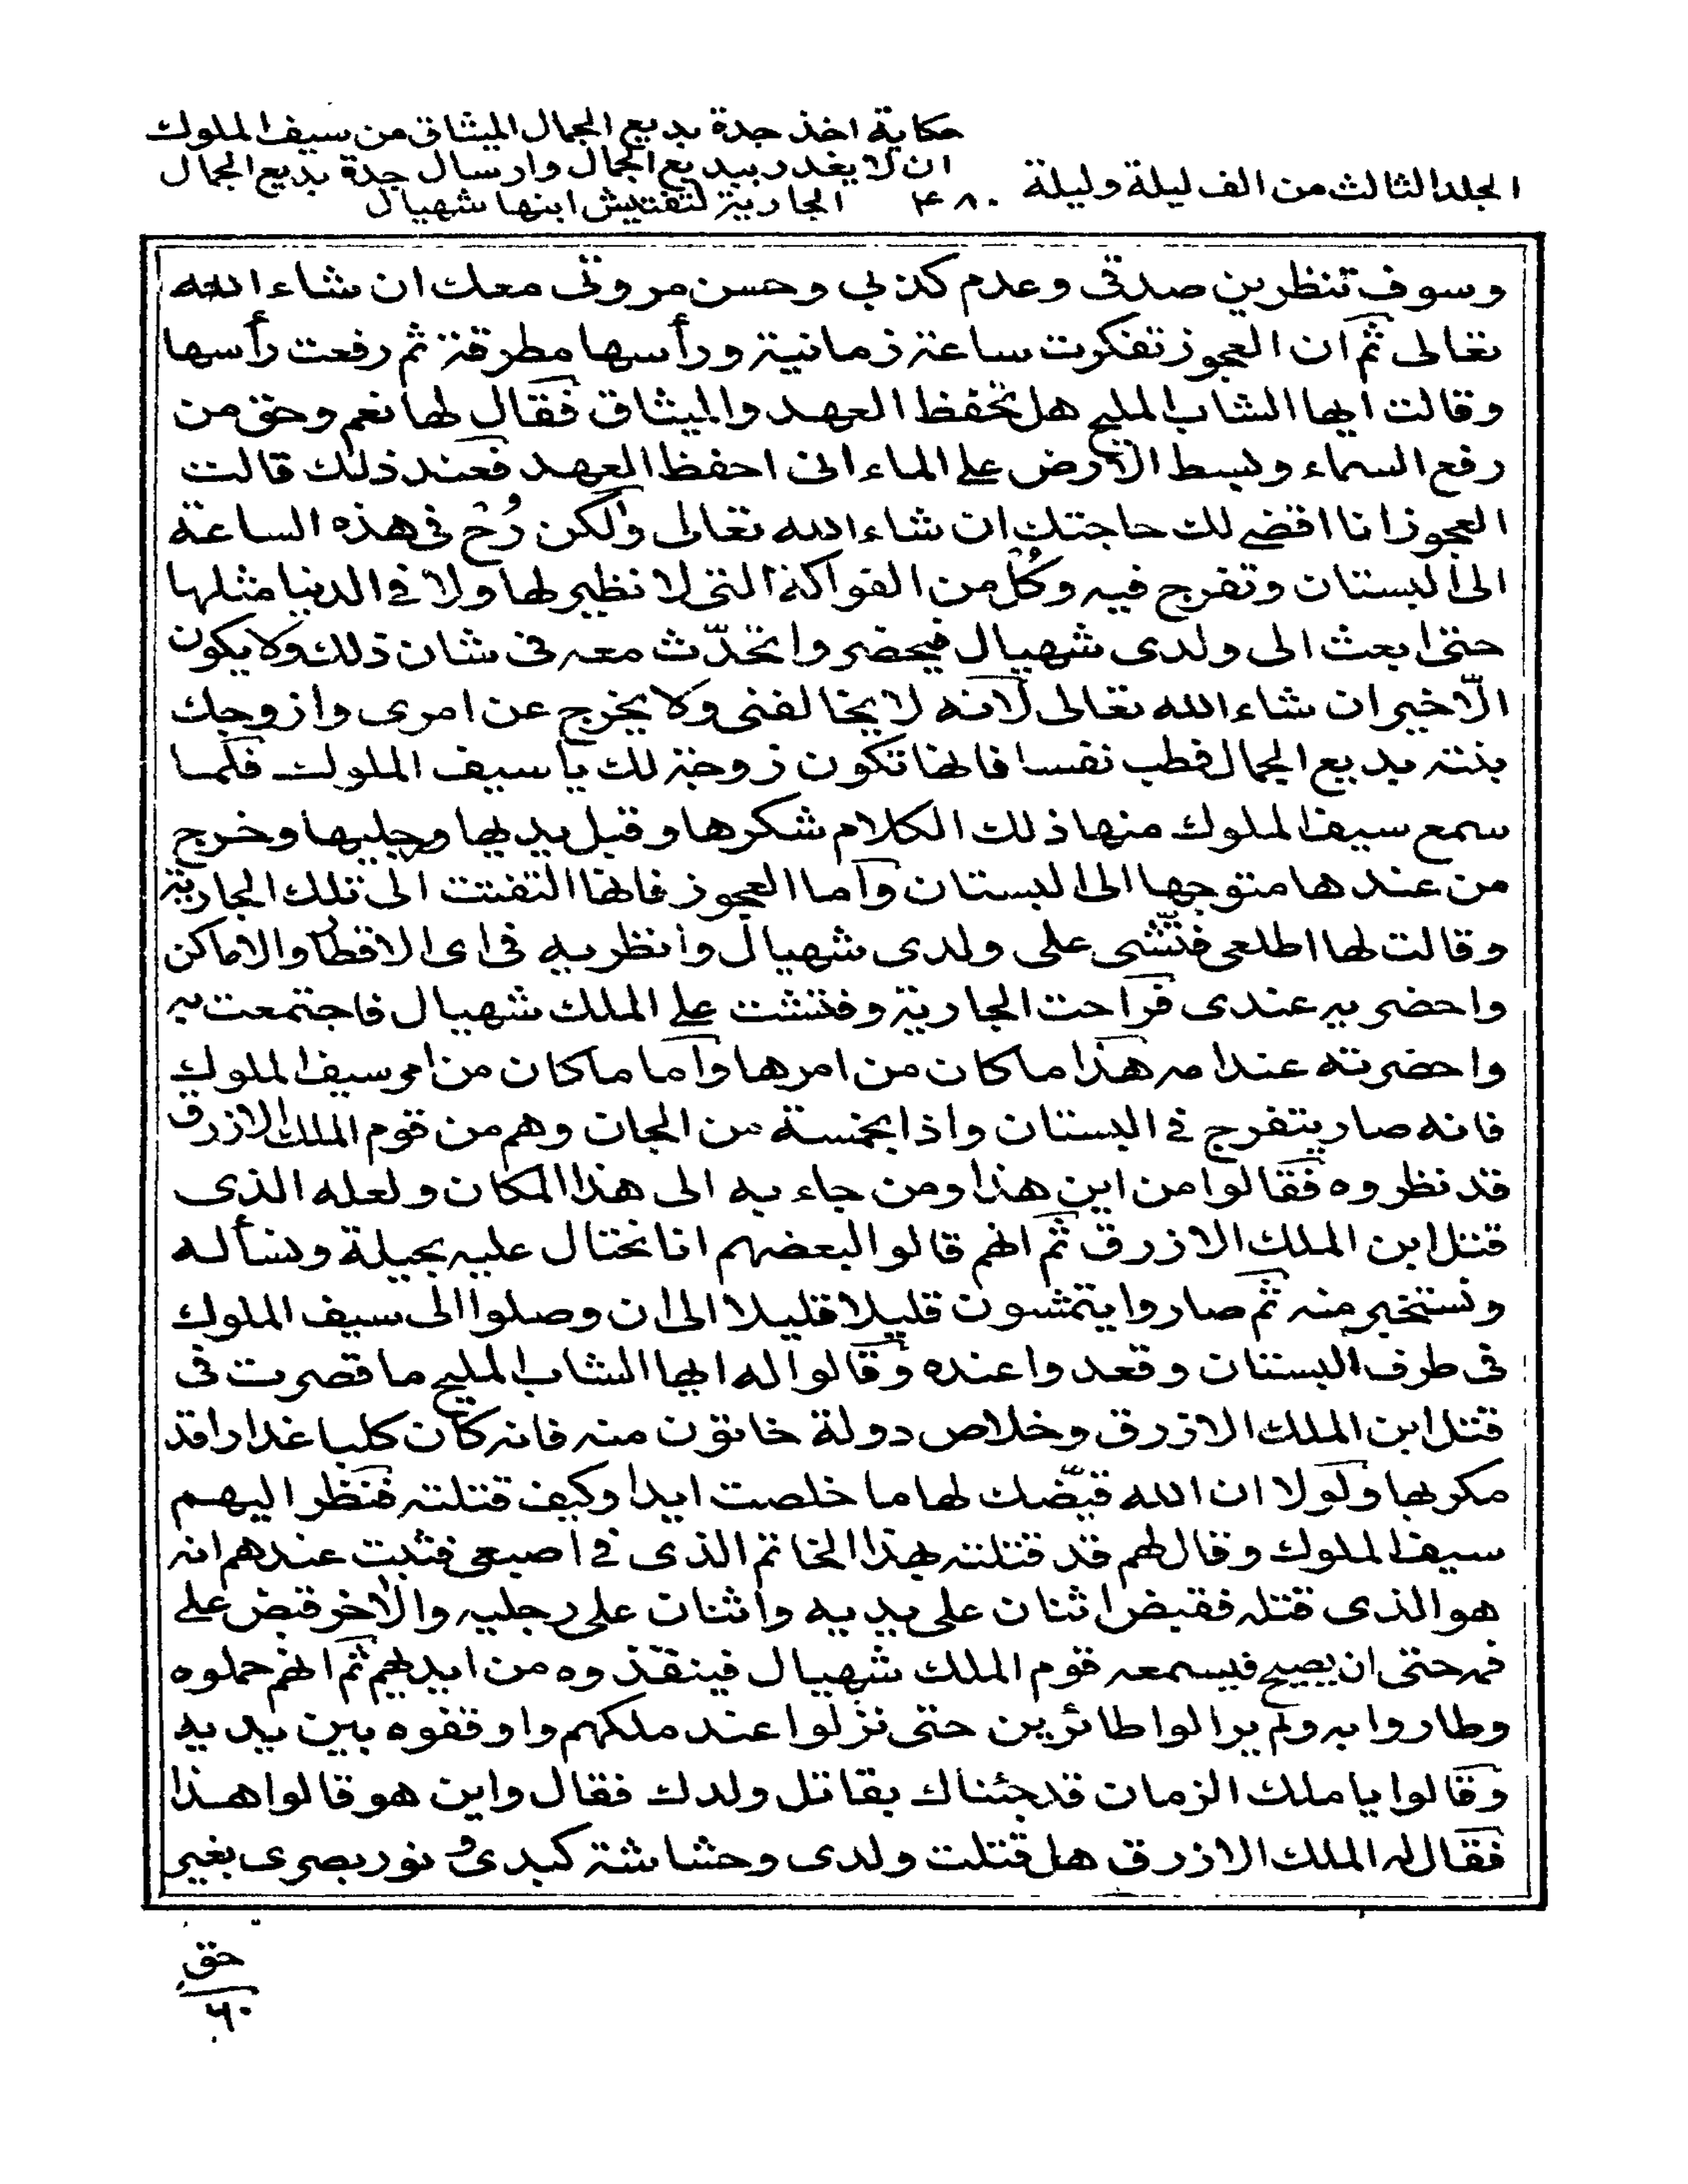 المجلد الثالث من الف ليلة وليلة
٤٨٠
حكاية اخذ جدة بديع الجمال الميثاق من سيف الملوك
ان لا يغدر ببديع الجمال وارسال جدة بديع الجمال
الجارية لتفتيش ابنها شهيال
وسوف تنظرين صدقى وعدم كذبي وحسن مروتى معك ان شاء الله
تعالى ثم ان العجوز تفكرت ساعة زمانية ورأسها مطرقة ثم رفعت رأسها
وقالت ايها الشاب المليح هل تحفظ العهد والميثاق فقال لها نعم وحق من
رفع السماء وبسط الارض على الماء انى احفظ العهد فعند ذلك قالت
العجوز انا اقضي لك حاجتك ان شاء الله تعالى ولكن رُحْ فى هذه الساعة
الى البستان وتفرج فيه وكُلْ من الفواكه التى لا نظير لها ولا في الدنيا مثلها
حتى ابعث الى ولدى شهيال فيحضر واتحدّث معه فى شان ذلك ولا يكون
الّا خير ان شاء الله تعالى لانه لا يخالفنى ولا يخرج عن امرى وازوجك
بنته بديع الجمال فطب نفسا فانها تكون زوجة لك يا سيف الملوك فلما
سمع سيف الملوك منها ذلك الكلام شكرها وقبل يديها ورجليها وخرج
من عندها متوجها الى البستان واما العجوز فانها التفتت الى تلك الجارية
وقالت لها اطلعى فتّشى على ولدى شهيال وانظريه فى اى الاقطار والاماكن
واحضريه عندى فراحت الجارية وفتشت على الملك شهيال فاجتمعت به
واحضرته عند امه هذا ما كان من امرها واما ما كان من امر سيف الملوك
فانه صار يتفرج في البستان واذا بخمسة من الجان وهم من قوم الملك الازرق
قد نظروه فقالوا من اين هذا ومن جاء به الى هذا المكان ولعله الذى
قتل ابن الملك الازرق ثم انهم قالوا لبعضهم انا نحتال عليه بحيلة ونسأله
ونستخبر منه ثم صاروا يتمشون قليلا قليلا الى ان وصلوا الى سيف الملوك
فى طرف البستان وقعدوا عنده وقالوا له ايها الشاب المليح ما قصرت فى
قتل ابن الملك الازرق وخلاص دولة خاتون منه فانه كان كلبا غدارا قد
مكر بها ولولا ان الله قيّضك لها ما خلصت ابدا وكيف قتلته فنظر اليهم
سيف الملوك وقال لهم قد قتلته بهذا الخاتم الذى في اصبعى فثبت عندهم انه
هو الذى قتله فقبض اثنان على يديه واثنان على رجليه والاخر قبض على
فمه حتى ان يصيح فيسمعه قوم الملك شهيال فينقذوه من ايديهم ثم انهم حملوه
وطاروا به ولم يزالوا طائرين حتى نزلوا عند ملكهم واوقفوه بين يديه
وقالوا يا ملك الزمان قد جئناك بقاتل ولدك فقال واين هو قالوا هذا
فقال له الملك الازرق هل قتلت ولدى وحشاشة كبدى ونور بصرى بغير
حق
٦٠